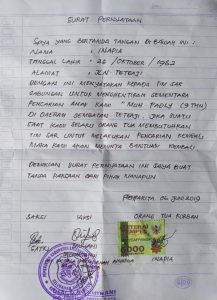 SURAT PERNYATAAN
SAYA YANG BERTANDA TANGAN DI BAWAH INI :
NAMA : INAPIA
TANGGAL LAHIR : 26 / OKTOBER / 1962
ALAMAT : JLN TETERJI
DENGAN INI MENYATAKAN KEPADA TIM SAR
GABUNGAN UNTUK MENGHENTIKAN SEMENTARA
PENCARIAN ANAK KAMI "MUH FADLY (9 THN)
DI DAERAH BENDUNGAN TETERJI. JIKA SUATU
SAAT KAMI SELAKU ORANG TUA MEMBUTUHKAN
TIM SAR UNTUK MELAKUKAN PENCARIAN KEMBALI
MAKA KAMI AKAN MEMINTA BANTUAN KEMBALI.
DEMIKIAN SURAT PERNYATAAN INI SAYA BUAT
TANPA PAKSAAN DARI PIHAK MANAPUN.
JUNI 2019
SAKSI ORANG TUA KORBAN
METERAI
6000
INAPIA